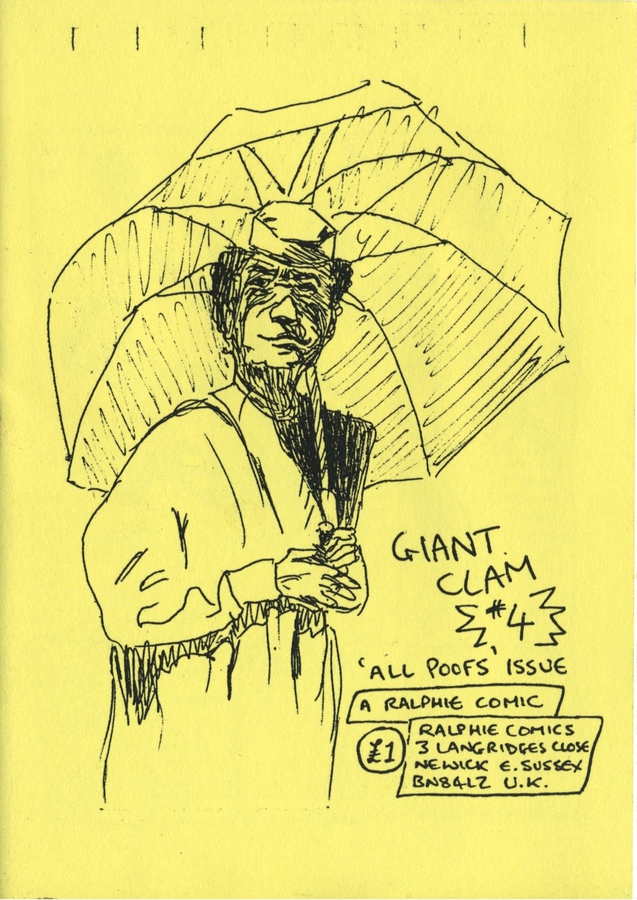 GIANT
CLAM
#4
'ALL POOFS' ISSUE
A RALPHIE COMIC
£1
RALPHIE COMICS
3 LANGRIDGES CLOSE
NEWICK E. SUSSEX
BN84LZ U.K.